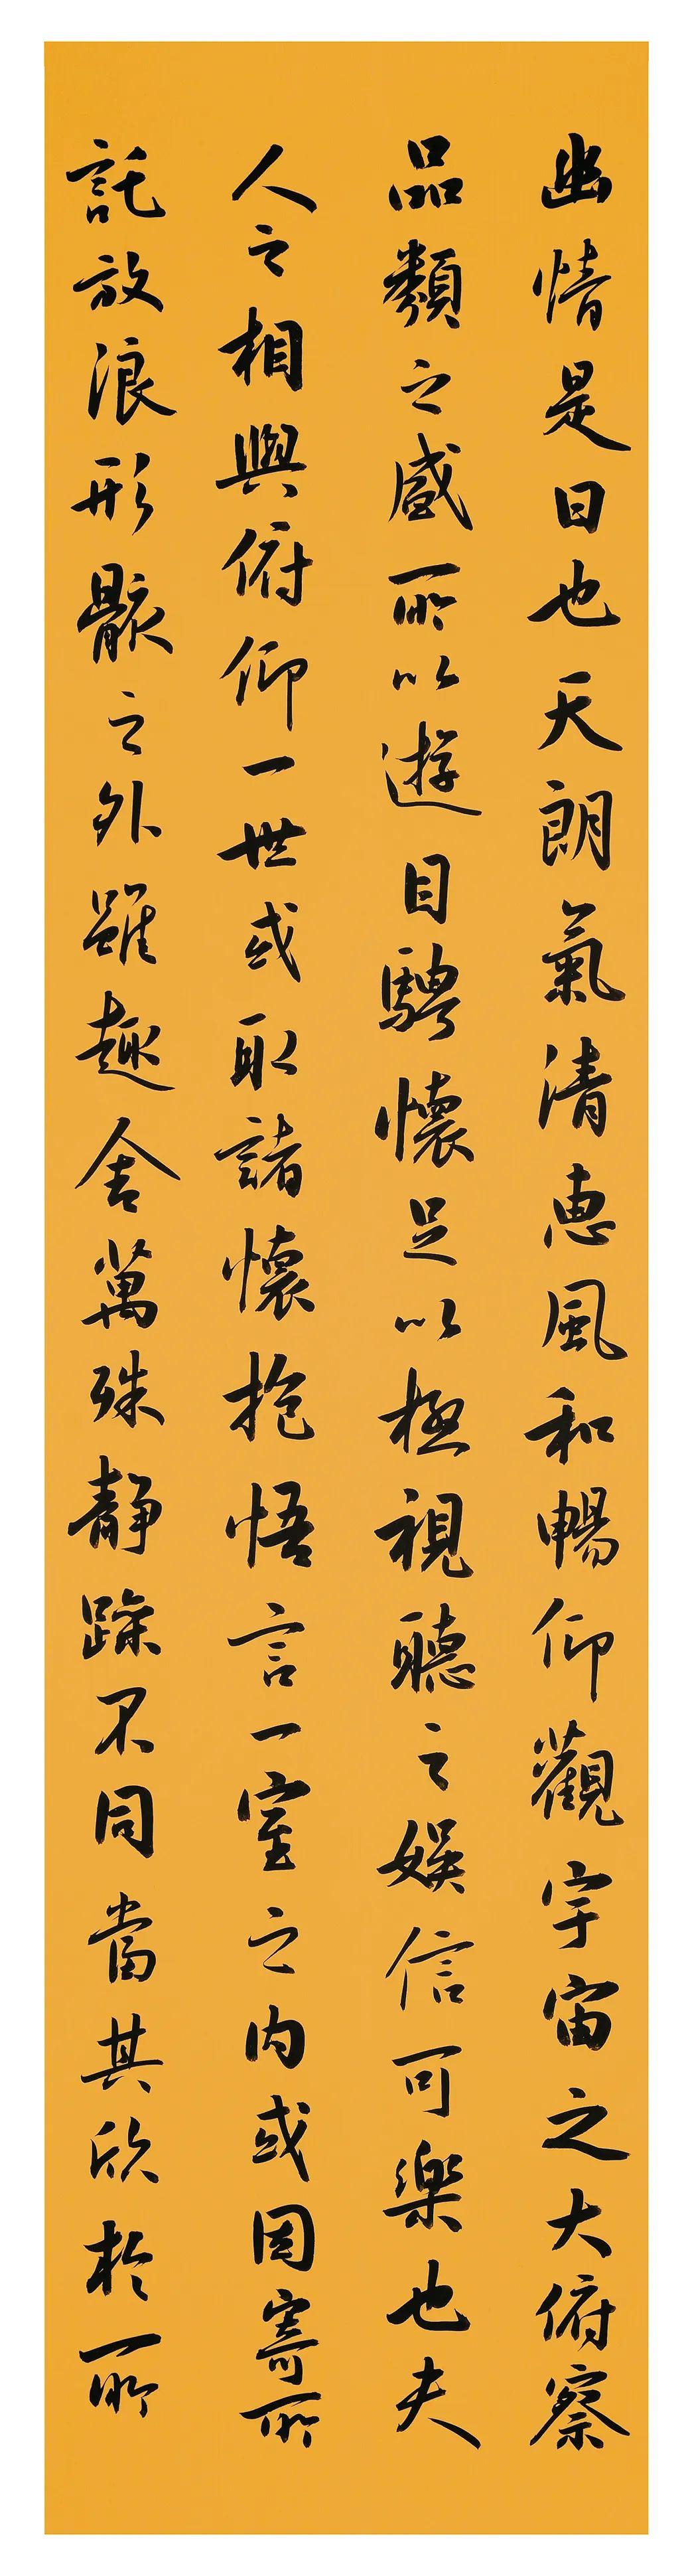 幽情是日也天朗氣清恵風和暢仰觀宇宙之大俯察
品類之盛所以遊目騁懷足以極視聽之娛信可樂也夫
人之相與俯仰一世或取諸懷抱悟言一室之内或因寄所
託放浪形骸之外雖趣舍萬殊静躁不同當其欣於所